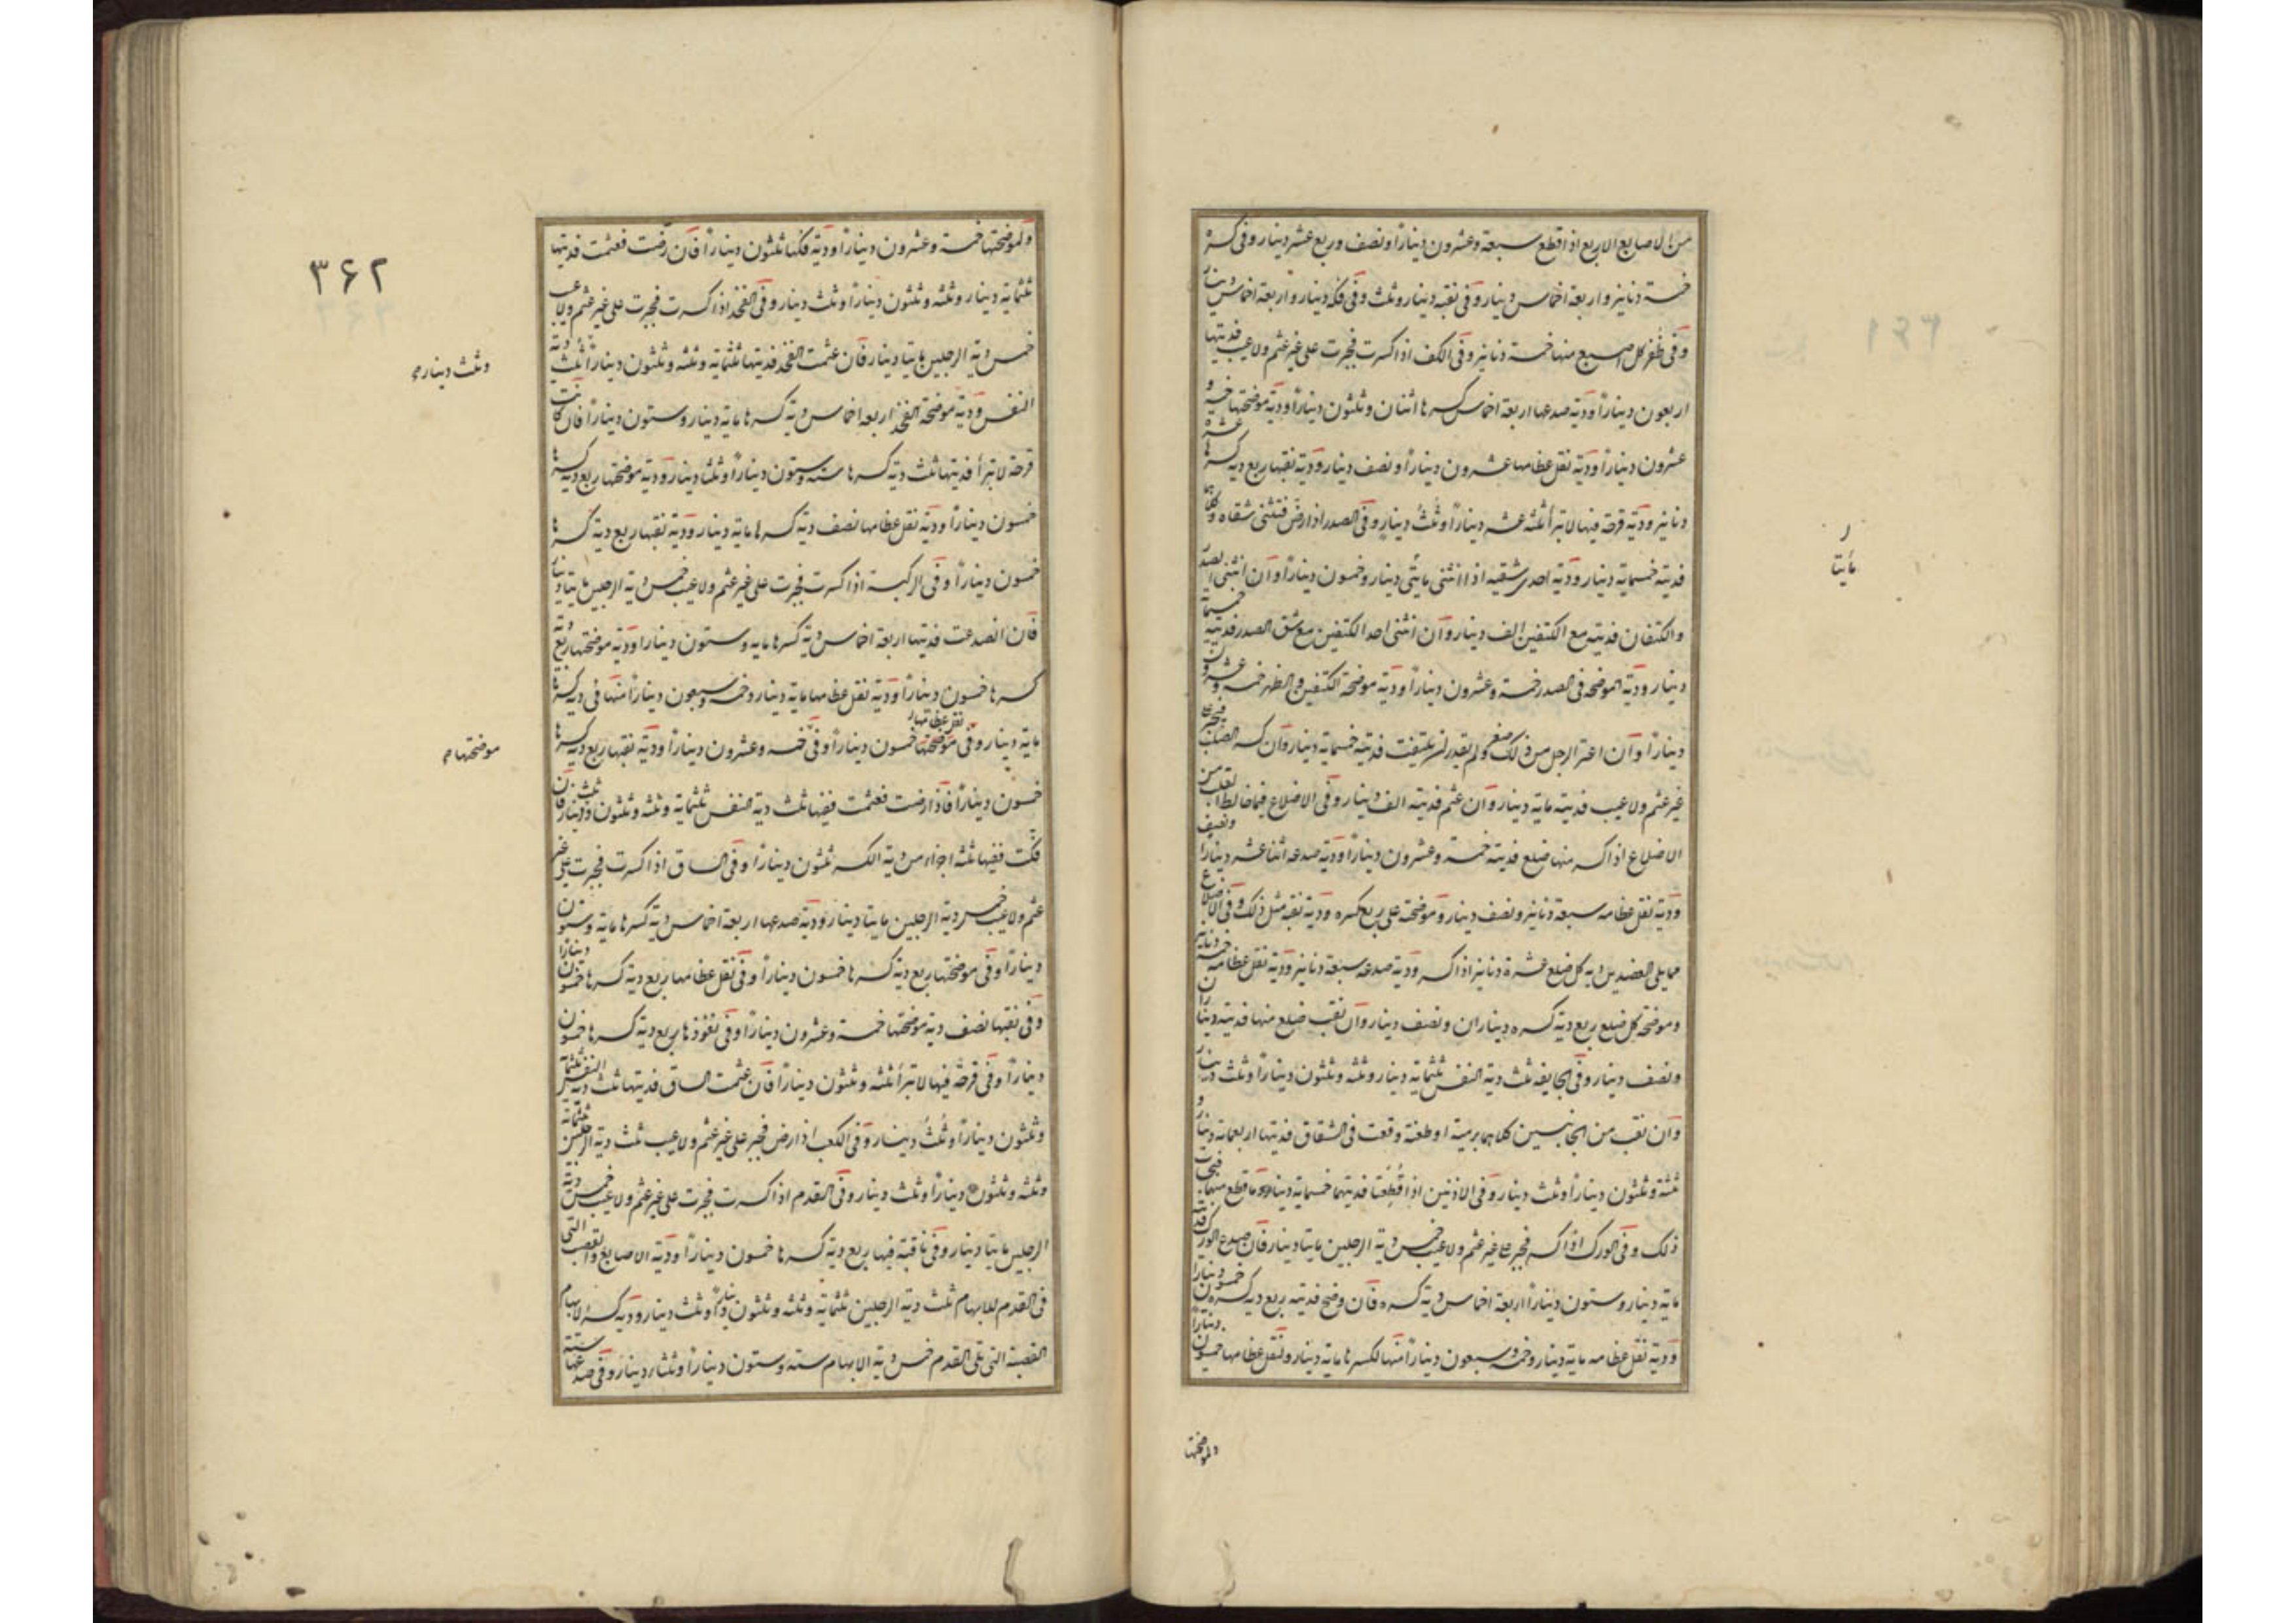 من الاصابع الاربع اذا قطع سبعة وعشرون دينارًا ونصف وربع عشر دينار وفي كسره
خمسة دنانير واربعة اخماس دينار وفي نقبه دينار وثلث وفي فكه دينار واربعة اخماس دينار
وفي ظفر كل اصبع منها خمسة دنانير وفي الكف اذا كسرت فجبرت على غير عثم ولا عيب فديتها
اربعون دينارًا ودية صدعها اربعة اخماس كسرها اثنان وثلثون دينارًا ودية موضحتها خمسة و
عشرون دينارًا ودية نقل عظامها عشرون دينارًا ونصف دينار ودية نقبها ربع دية كسرها عشرة
دنانير ودية قرحة فيها لا تبرأ ثلثة عشر دينارًا وثلثُ دينارٍ وفي الصدر اذا رضّ فثنى شقاه كلاهما
فديته خمسماية دينار ودية احدى شقيه اذا انثنى مايتى دينار وخمسون دينارًا وان انثنى الصدر
والكتفان فديته مع الكتفين الف دينار وان انثنى احد الكتفين مع شق الصدر فديته خمسماية
دينار ودية الموضحه في الصدر خمسة وعشرون دينارًا ودية موضحة الكتفين والظهر خمسة وعشرون
دينارًا وان اعترا الرجل من ذلك صعر ولم يقدر ان يلتفت فديته خمسماية دينار وان كسر الصلب فجبر على
غير عثم ولا عيب فديته ماية دينار وان عثم فديته الف دينار وفي الاضلاع فيما خالط القلب من
الاضلاع اذا كسر منها ضلع فديته خمسة وعشرون دينارًا ودية صدعه اثنا عشر دينارًا ونصف
ودية نقل عظامه سبعة دنانير ونصف دينار وموضحته على ربع كسره ودية نقبه مثل ذلك وفي الاضلاع
مما يلي العضدين دية كل ضلع عشرة دنانير اذا كسر ودية صدعه سبعة دنانير ودية نقل عظامه خمسة دنانير
وموضحة كل ضلع ربع دية كسره ديناران ونصف دينار وان نقب ضلع منها فديته ديناران
ونصف دينار وفي الجايفه ثلث دية النفس ثلثماية دينار وثلثه وثلثون دينارًا وثلث دينار
وان نقب من الجانبين كلاهما برمية او طعنة وقعت في الشقاق فديتها اربعماية دينار و
ثلثة وثلثون دينارًا وثلث دينار وفي الاذنين اذا قُطِعَتا فديتهما خمسماية دينار وما قطع منها فبحساب
ذلك وفي الورك اذا كسر فجبر على غير عثم ولا عيب خمس دية الرجلين مايتا دينار فان صدع الورك فديته
ماية دينار وستون دينارًا اربعة اخماس دية كسره فان وضح فديته ربع دية كسره خمسون دينارًا
ودية نقل عظامه ماية دينار وخمسة وسبعون دينارًا منها لكسرها ماية دينار ولنقل عظامها خمسون دينارًا
ر
مأيتا
ولموضحتها
ولموضحتها خمسة وعشرون دينارًا ودية فكها ثلثون دينارًا فان رضّت فعثمت فديتها
ثلثماية دينار وثلثه وثلثون دينارًا وثلث دينار وفي الفخذ اذا كسرت فجبرت على غير عثم ولا عيب
خمس دية الرجلين مايتا دينار فان عثمت الفخذ فديتها ثلثماية وثلثه وثلثون دينارًا ثلث دية
النفس ودية موضحة الفخذ اربعة اخماس دية كسرها ماية دينار وستون دينارًا فان كانت
قرحة لا تبرأ فديتها ثلث دية كسرها ستة وستون دينارًا وثلثا دينار ودية موضحتها ربع دية كسرها
خمسون دينارًا ودية نقل عظامها نصف دية كسرها ماية دينار ودية نقبها ربع دية كسرها
خمسون دينارًا وفي الركبة اذا كسرت فجبرت على غير عثم ولا عيب خمس دية الرجلين مايتا دينار
فان انصدعت فديتها اربعة اخماس دية كسرها مايه وستون دينارا ودية موضحتها ربع دية
كسرها خمسون دينارًا ودية نقل عظامها ماية دينار وخمسة وسبعون دينارًا منها في دية كسرها
ماية دينار وفي نقل عظامها خمسون دينارًا وفي موضحتها خمسه وعشرون دينارًا ودية نقبها ربع دية كسرها
خمسون دينارًا فاذا رضت فعثمت ففيها ثلث دية النفس ثلثماية وثلثه وثلثون دينارًا وثلث دينار فان
فكّت ففيها ثلثه اجزاء من دية الكسر ثلثون دينارًا وفي الساق اذا كسرت فجبرت على غير
عثم ولا عيب خمس دية الرجلين مايتا دينار ودية صدعها اربعة اخماس دية كسرها ماية وستون
دينارًا وفي موضحتها ربع دية كسرها خمسون دينارًا وفي نقل عظامها ربع دية كسرها خمسون دينارًا
وفي نقبها نصف دية موضحتها خمسة وعشرون دينارًا وفي نفوذها ربع دية كسرها خمسون
دينارًا وفي قرحة فيها لا تبرأ ثلثه وثلثون دينارًا فان عثمت الساق فديتها ثلث دية النفس ثلثماية
وثلثون دينارًا وثلثُ دينار وفي الكعب اذا رض فجبر على غير عثم ولا عيب ثلث دية الرجلين ثلثماية
وثلثه وثلثون دينارًا وثلث دينار وفي القدم اذا كسرت فجبرت على غير عثم ولا عيب خمس دية
الرجلين مايتا دينار وفي ناقبة فيها ربع دية كسرها خمسون دينارًا ودية الاصابع والقصب التي
في القدم للابهام ثلث دية الرجلين ثلثماية وثلثه وثلثون دينارًا وثلث دينار ودية كسر الابهام
القصبة التي تلي القدم خمس دية الابهام ستة وستون دينارًا وثلثا دينار وفي صدعها ستة
٣۶٢
وثلث دينار م
موضحتها م